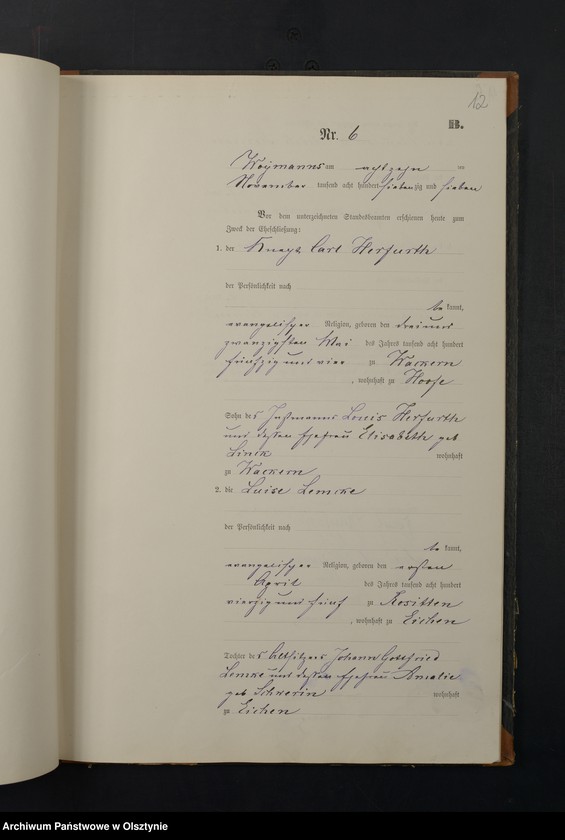 12
B.
Nr. 6
Woymanns am achtzehn ten
November tausend acht hundert siebenzig und sieben
Vor dem unterzeichneten Standesbeamten erschienen heute zum
Zweck der Eheschließung:
1. der Knecht Carl Herfurth
der Persönlichkeit nach
be kannt,
evangelischer Religion, geboren den dreiund
zwanzigsten Mai des Jahres tausend acht hundert
fünfzig und vier zu Wackern
, wohnhaft zu Hoofe
Sohn des Instmanns Louis Herfurth
und dessen Ehefrau Elisabeth geb
Linck wohnhaft
zu Wackern
2. die Luise Lemcke
der Persönlichkeit nach
be kannt,
evangelischer Religion, geboren den ersten
April des Jahres tausend acht hundert
vierzig und fünf zu Rositten
, wohnhaft zu Eichen
Tochter des Altsitzers Johann Gottfried
Lemke und dessen Ehefrau Amalie
geb Schwerin wohnhaft
zu Eichen
Archiwum Państwowe w Olsztynie